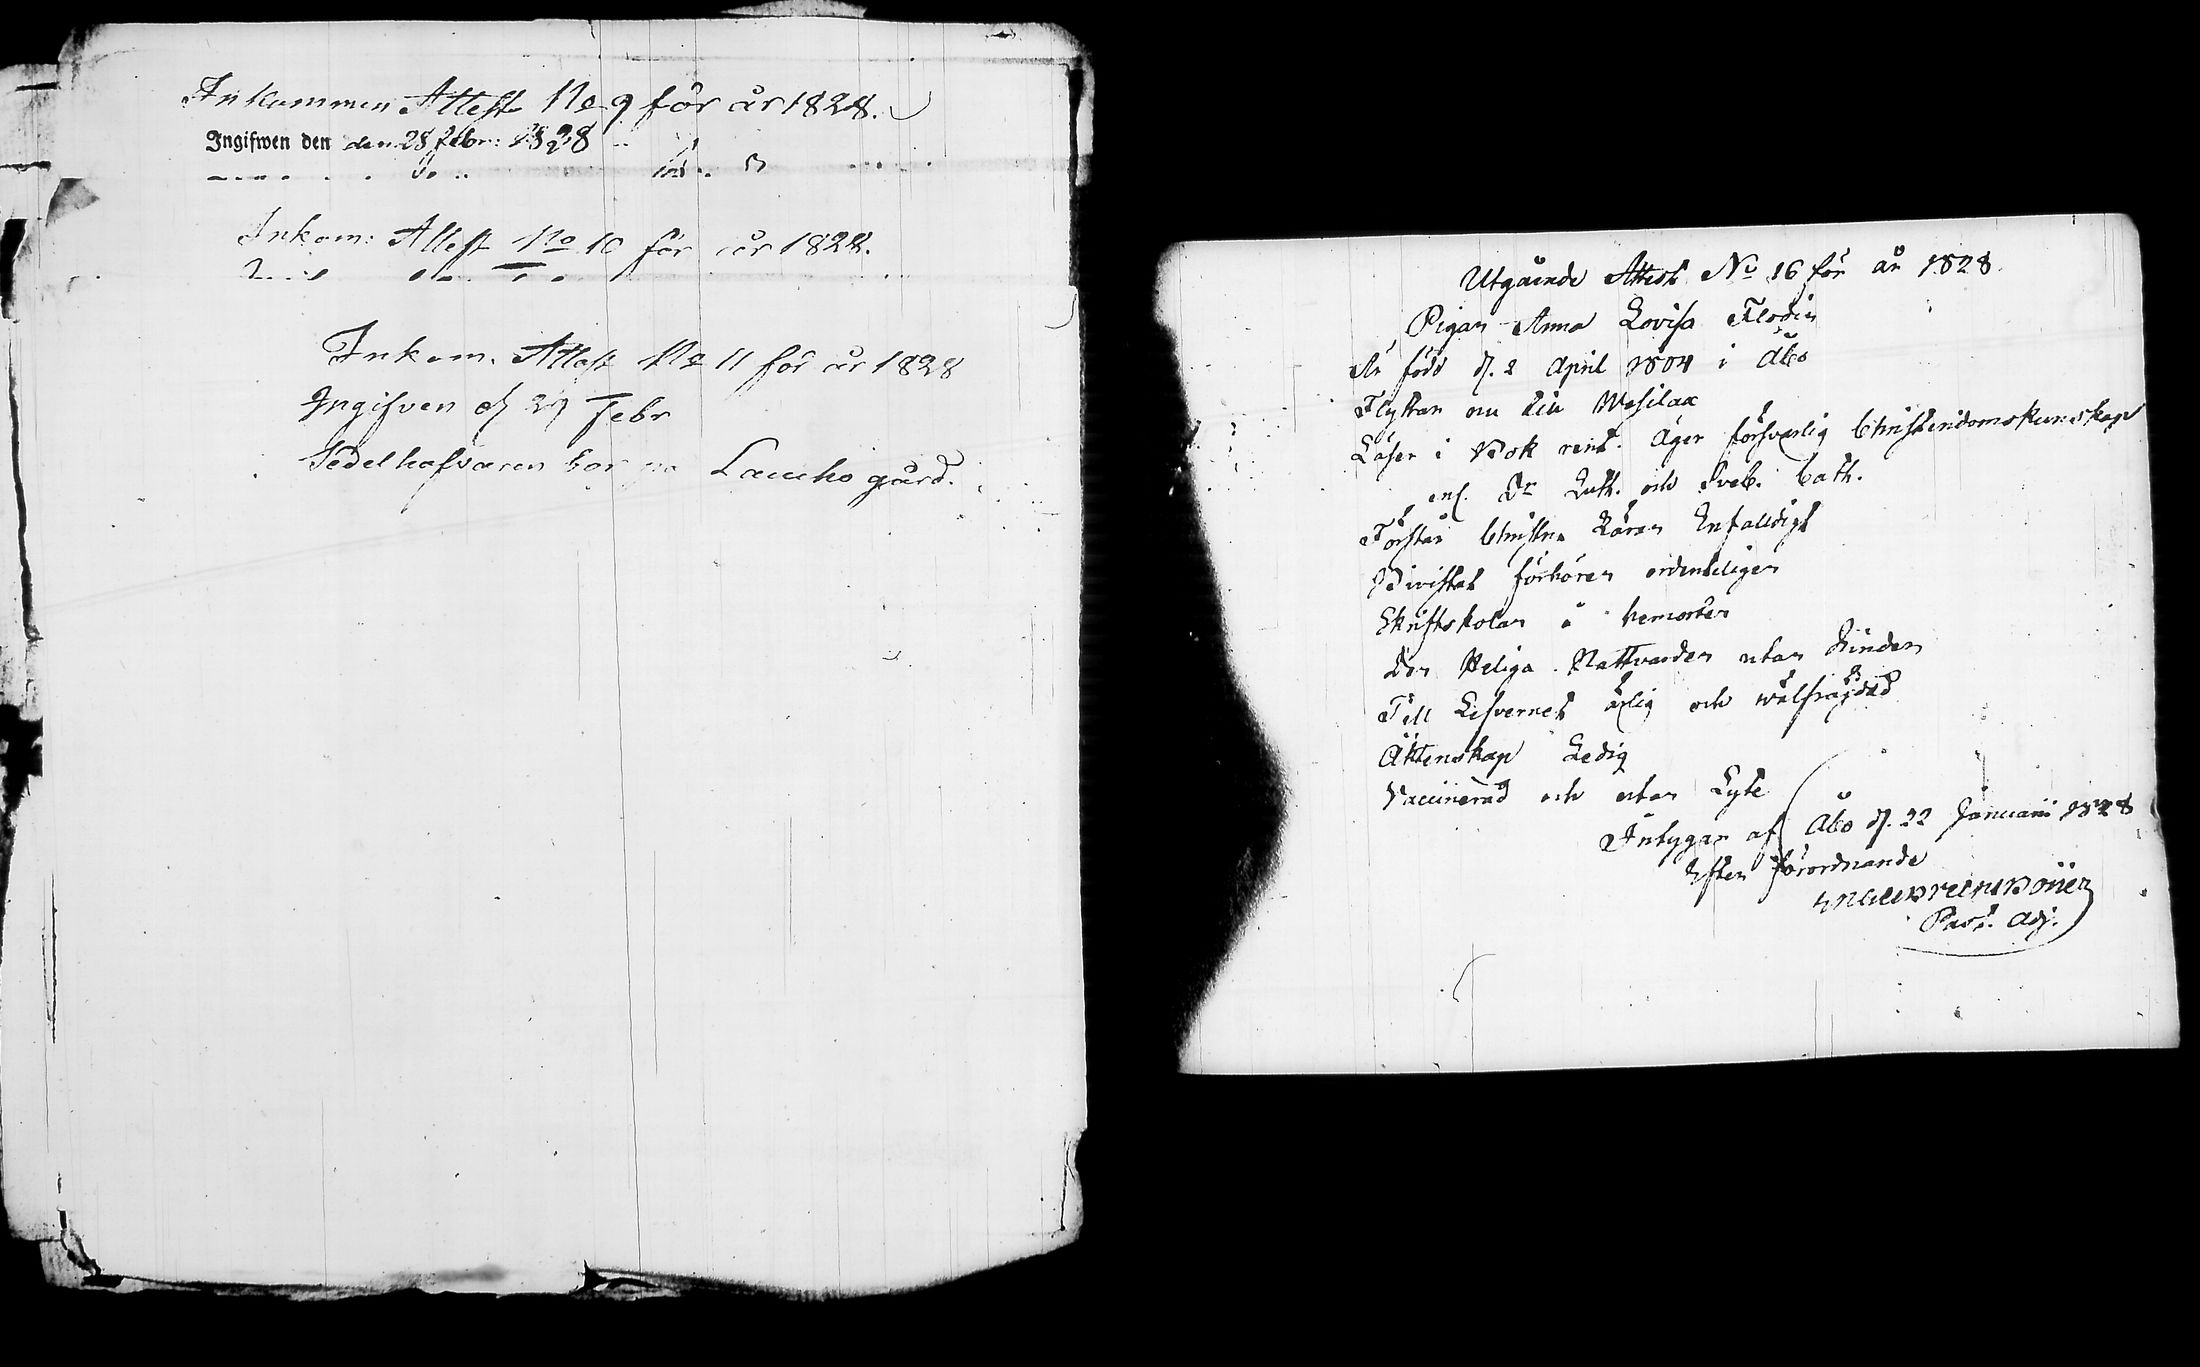 Inkommen Attest No 9 för år 1828.
Ingifwen den den 28 Febr: 1828
Inkom: Attest No 10 för år 1828.
Inkom. Attest No 11 för år 1828
Ingifven d 29 Febr
Sedelhafvaren bor på Laucko gård.
Utgående Attest No 16 för år 1828.
Pigan Anna Lovisa Flodin
Är född d. 2 April 1804 i Åbo
Flyttar nu till Wesilax
Läser i Bok rent. Äger försvarlig Christendomskunskap
enl. Dr Luth. och Sveb. Cath.
Förstår Christna Läran Enfaldigt
Bivistat förhören ordenteligen
Skriftskolan å hemorten
Den Heliga Nattvarden utan hinder
Till Lefvernet ärlig och wälfräjdad
Äktenskap Ledig
Vaccinerad och utan Lyte
Intygar af Åbo d. 22 Januarii 1828
Efter förordnande
Past. Adj.